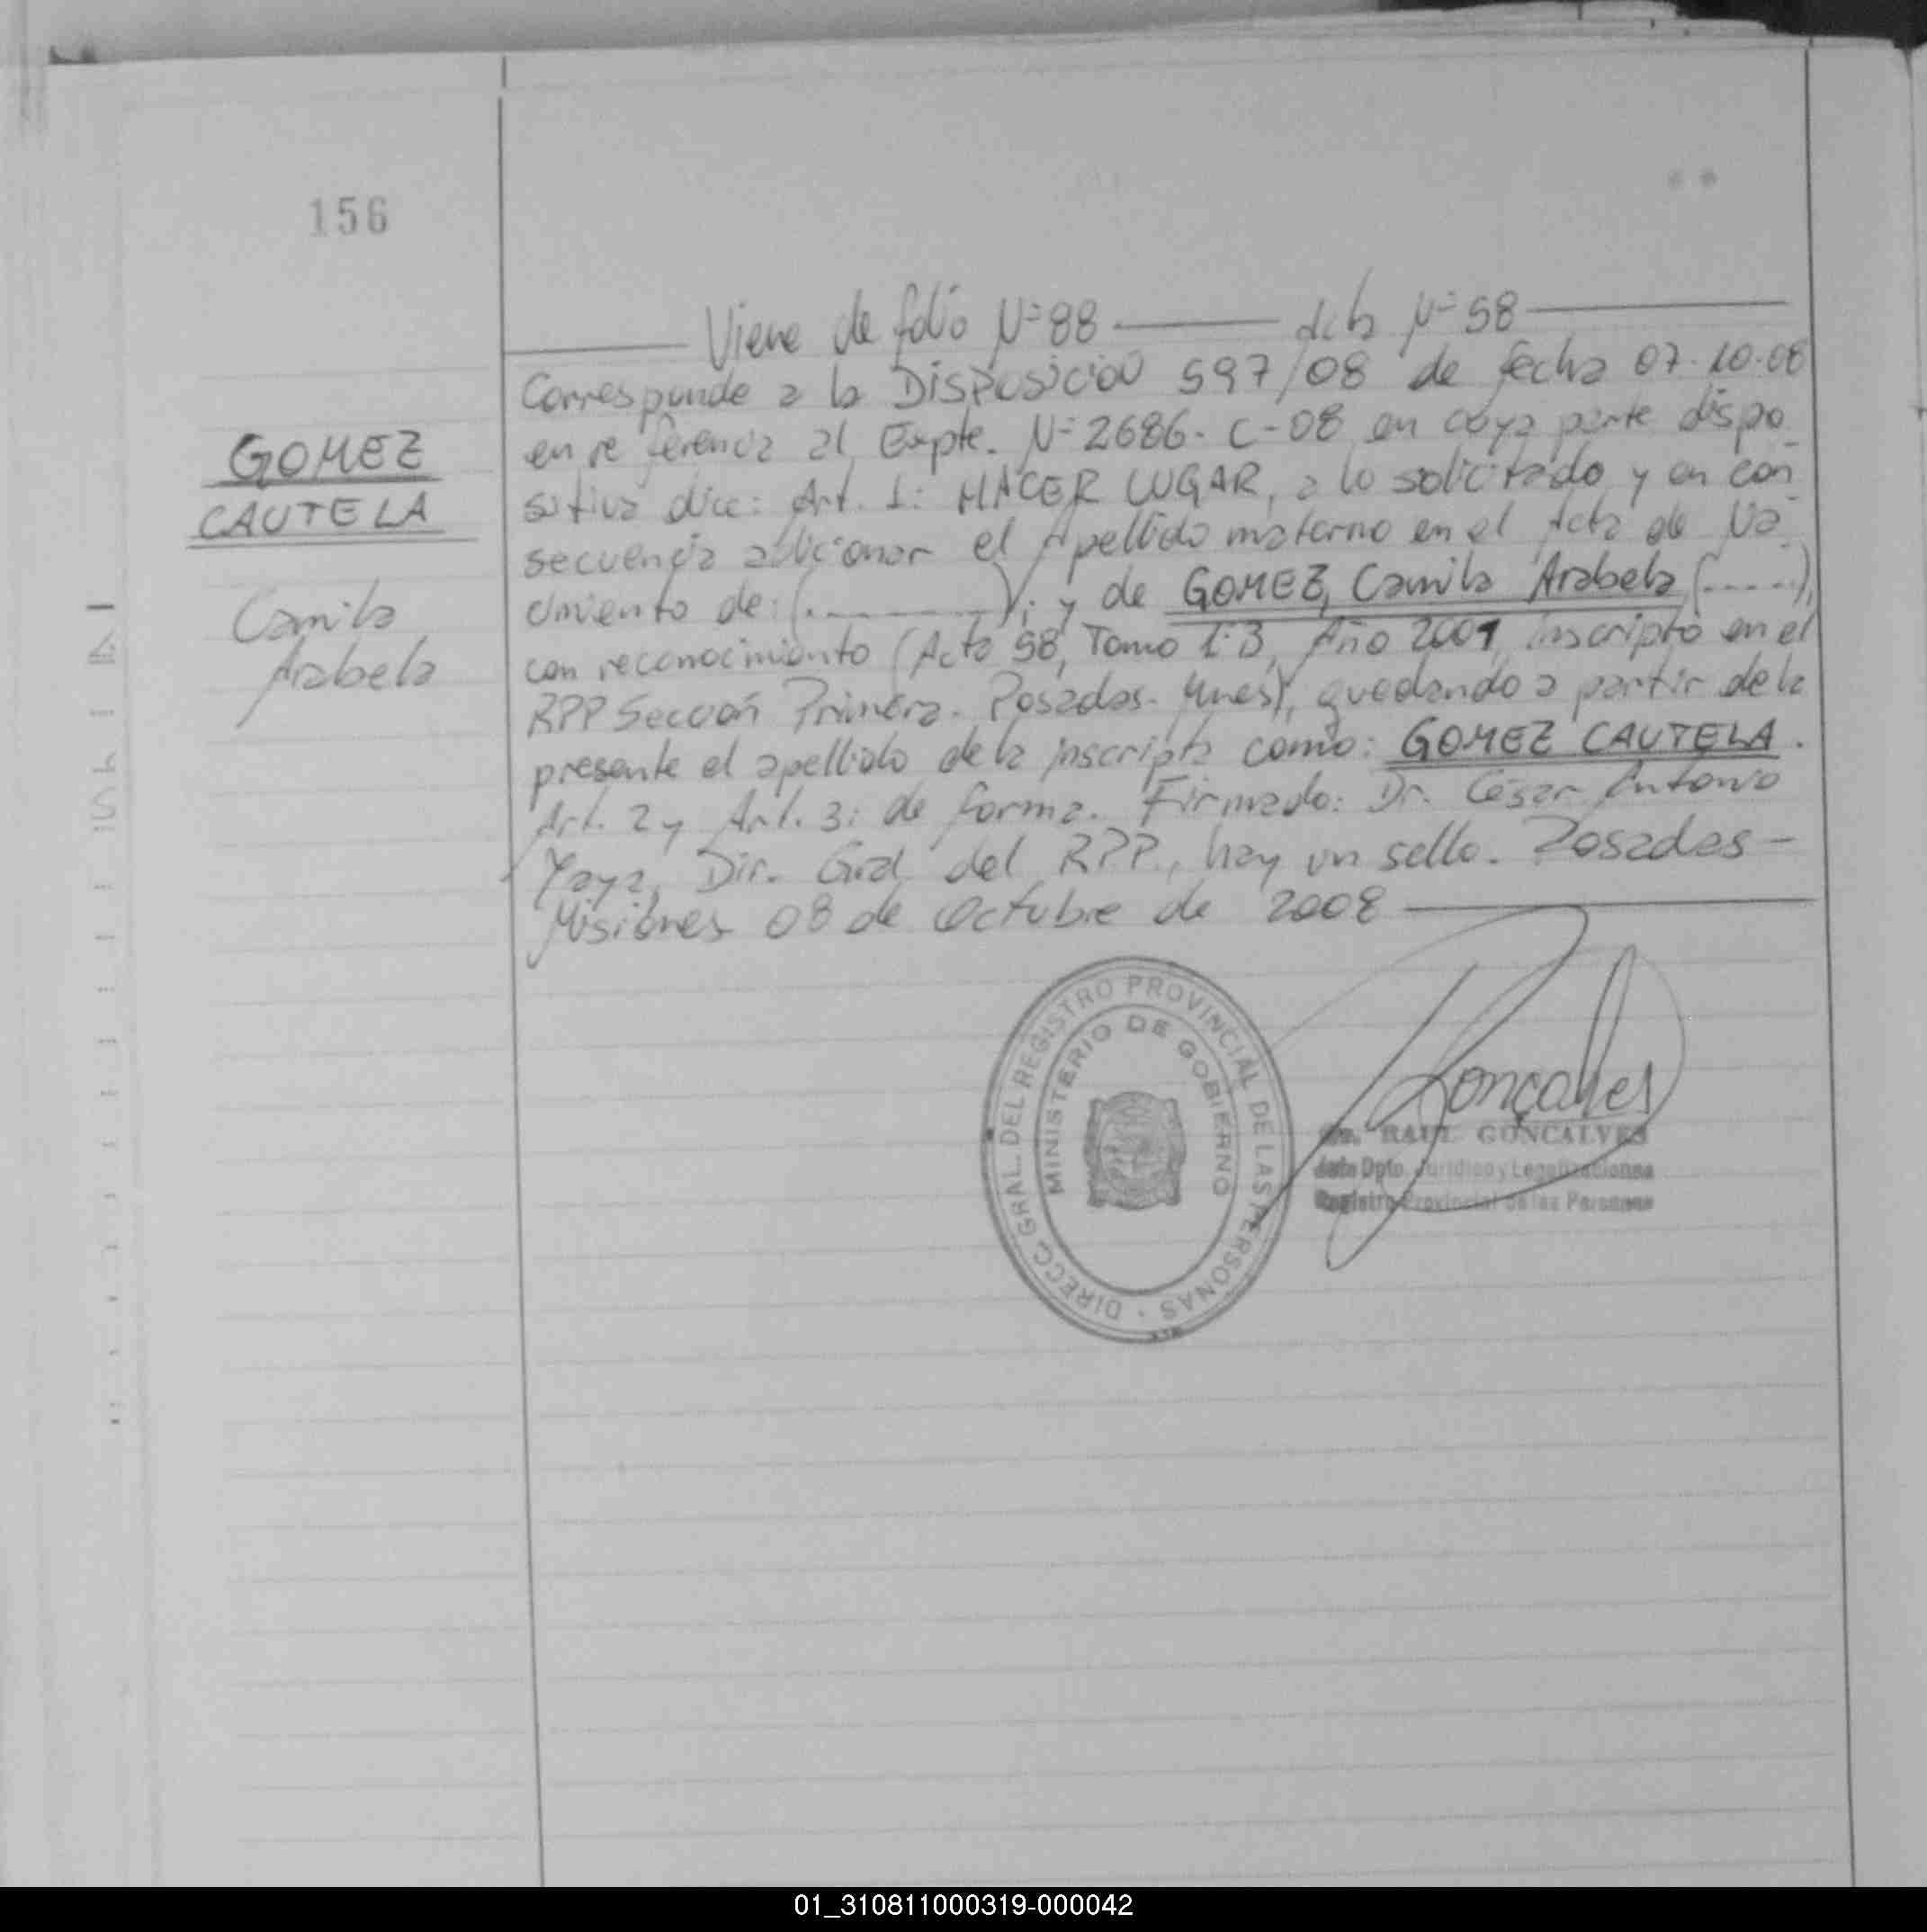 156
Viene de folio Nº 88 ——— Acta Nº 58 ———
GOMEZ
CAUTELA
Camila
Arabela
Corresponde a la Disposición 597/08 de fecha 07.10.08
en referencia al Expte. Nº 2686-C-08 en cuya parte dispo
sitiva dice: Art. 1: HACER LUGAR, a lo solicitado y en con
secuencia adicionar el Apellido materno en el Acta de Na
cimiento de: (..........); y de GOMEZ, Camila Arabela (.....),
con reconocimiento (Acta 58, Tomo 1º B, Año 2001, inscripto en el
RPP Sección Primera. Posadas. Mnes), quedando a partir de la
presente el apellido de la inscripta como: GOMEZ CAUTELA.
Art. 2 y Art. 3: de forma. Firmado: Dr. César Antonio
Yaya, Dir. Gral del RPP., hay un sello. Posadas -
Misiones 08 de Octubre de 2008 ———
DIRECC. GRAL. DEL REGISTRO PROVINCIAL DE LAS PERSONAS
MINISTERIO DE GOBIERNO
Gonçalves
Dr. RAUL GONCALVES
Jefe Dpto. Jurídico y Legalizaciones
Registro Provincial de las Personas
01_310811000319-000042